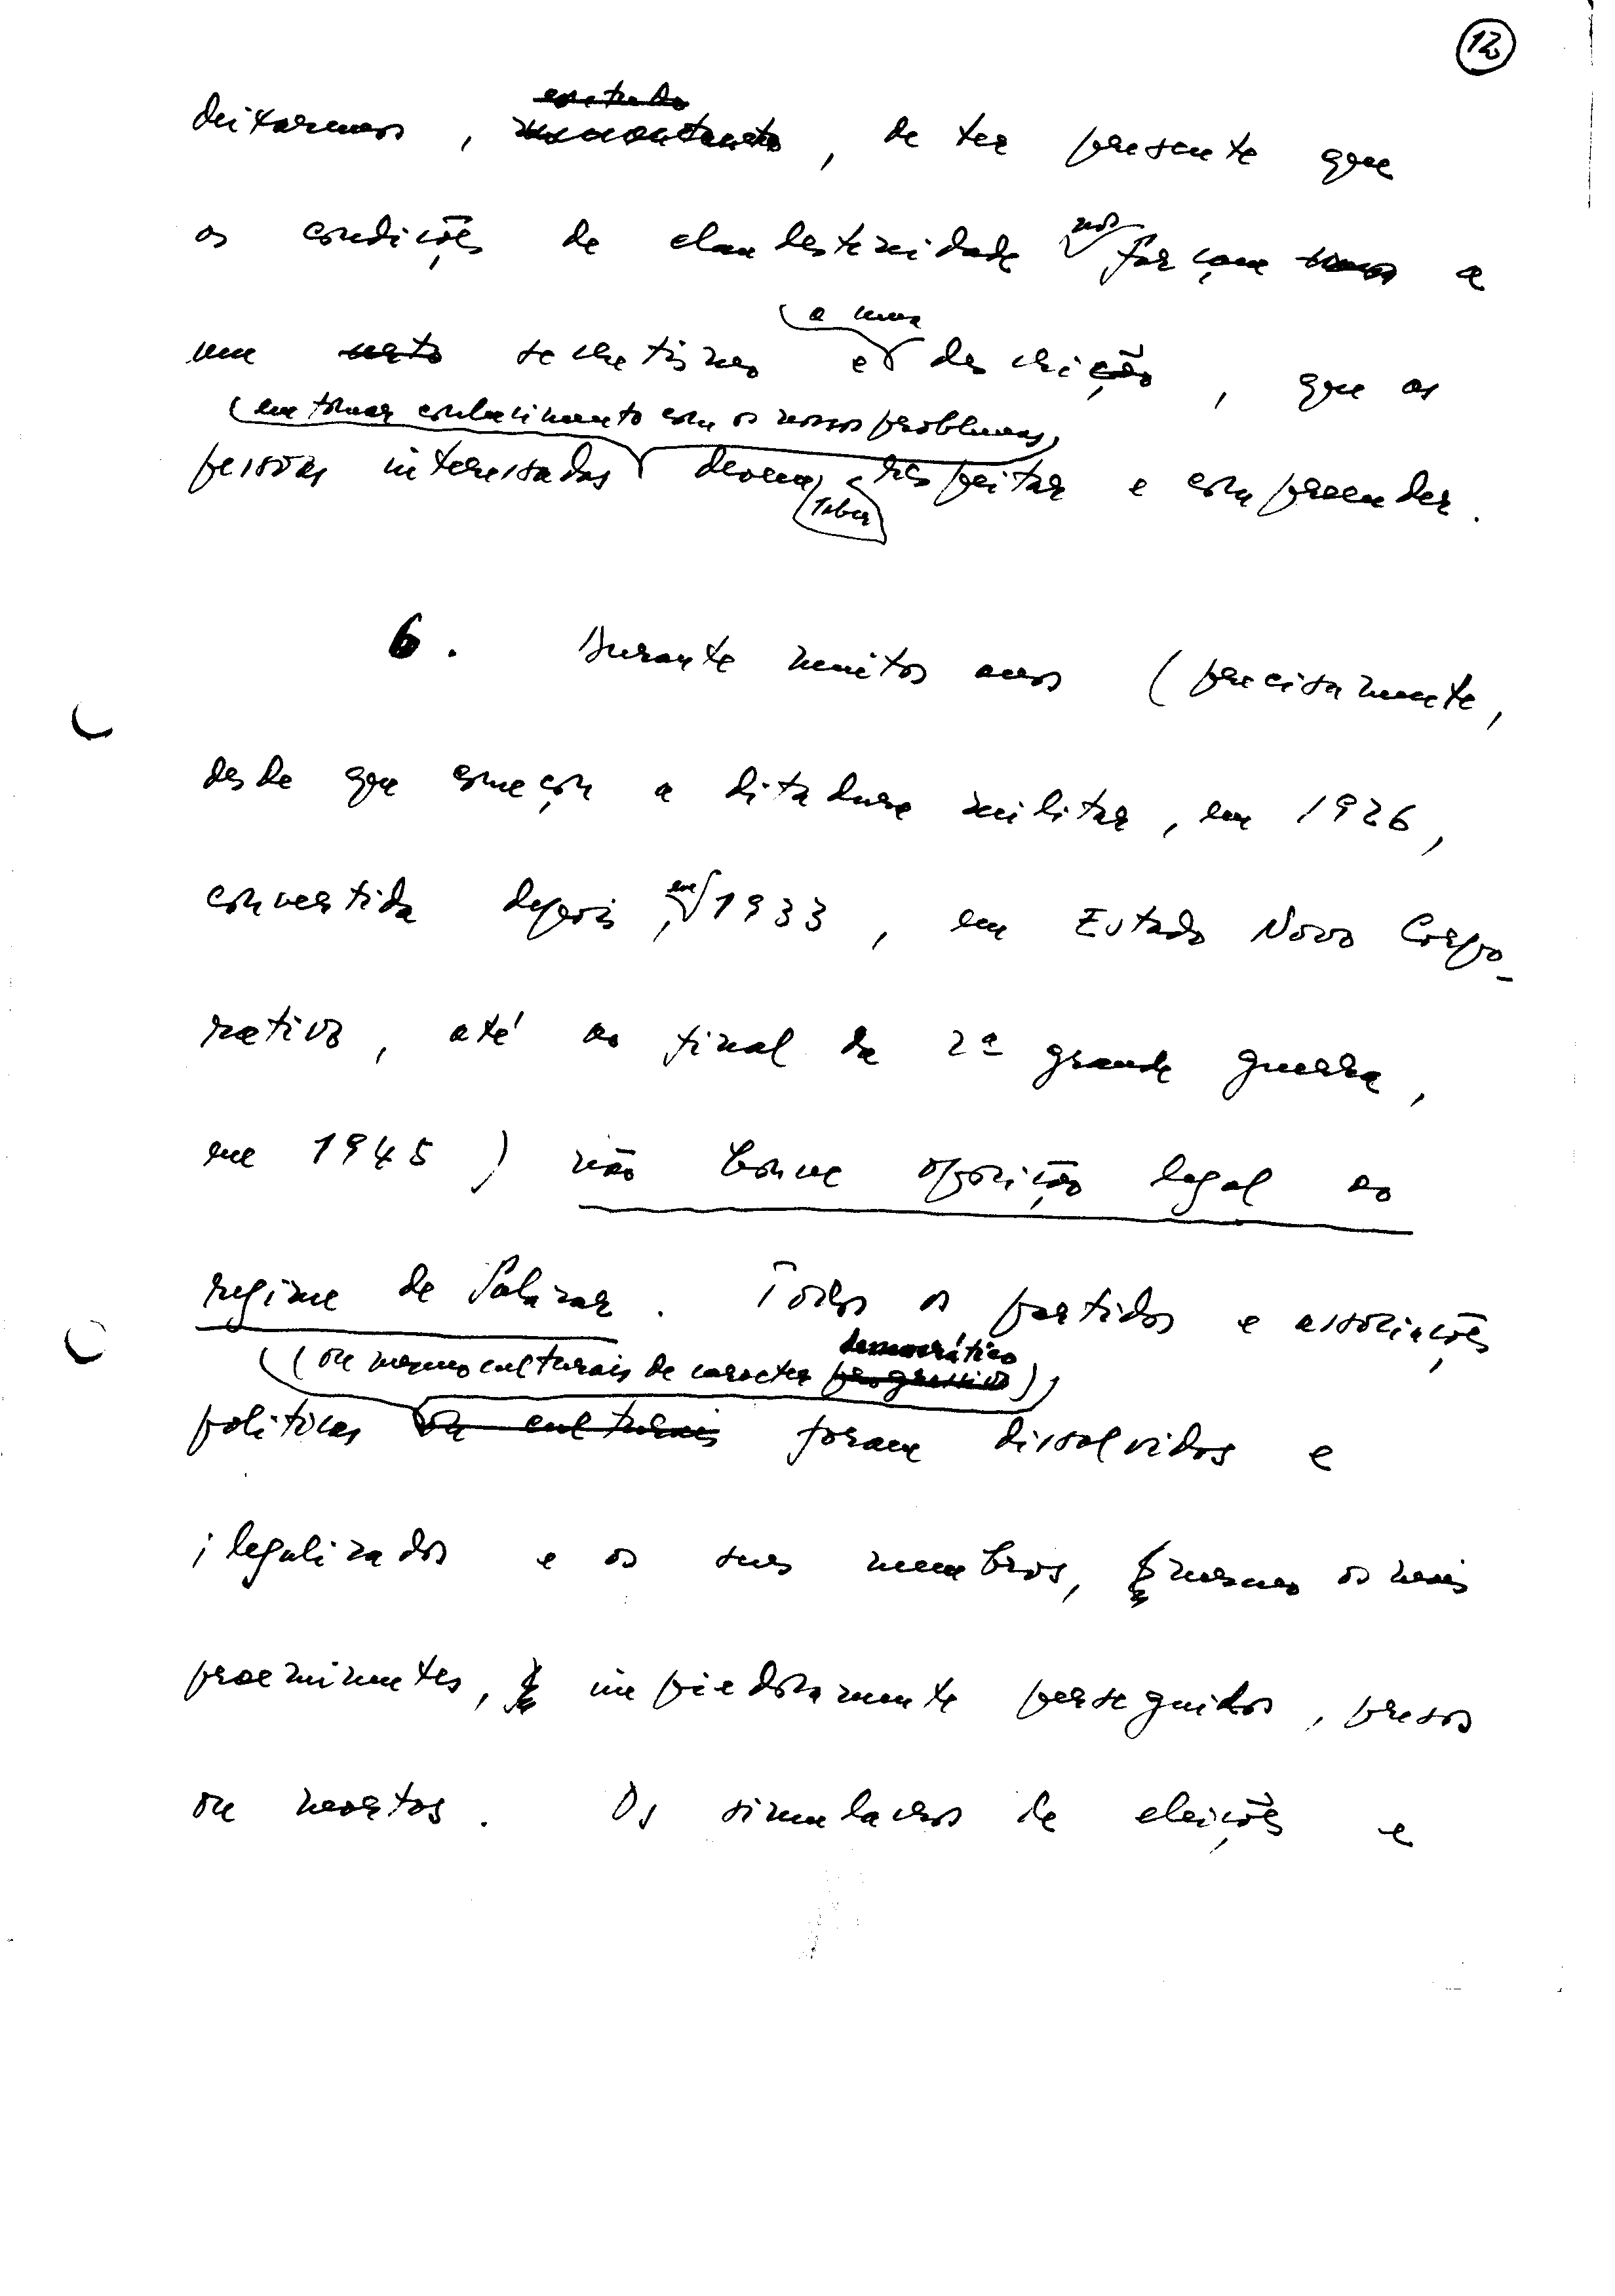 12
deixaremos, de ter presente que
as condições de clandestinidade nos forçam a
um certo secretismo e a uma descrição, que as
(em tomar conhecimento com os nossos problemas)
pessoas interessadas devem saber respeitar e compreender.
6. Durante muitos anos (precisamente,
desde que começou a ditadura militar, em 1926,
convertida depois, em 1933, em Estado Novo Corpo-
rativo, até ao final da 2ª grande guerra,
em 1945) não houve oposição legal ao
regime de Salazar. Todos os partidos e associações
(ou mesmo culturais de caracter progressivo democrático),
políticas ou culturais foram dissolvidos e
ilegalizados e os seus membros, mesmo os mais
proeminentes, impiedosamente perseguidos, presos
ou mortos. Os simulacros de eleições e